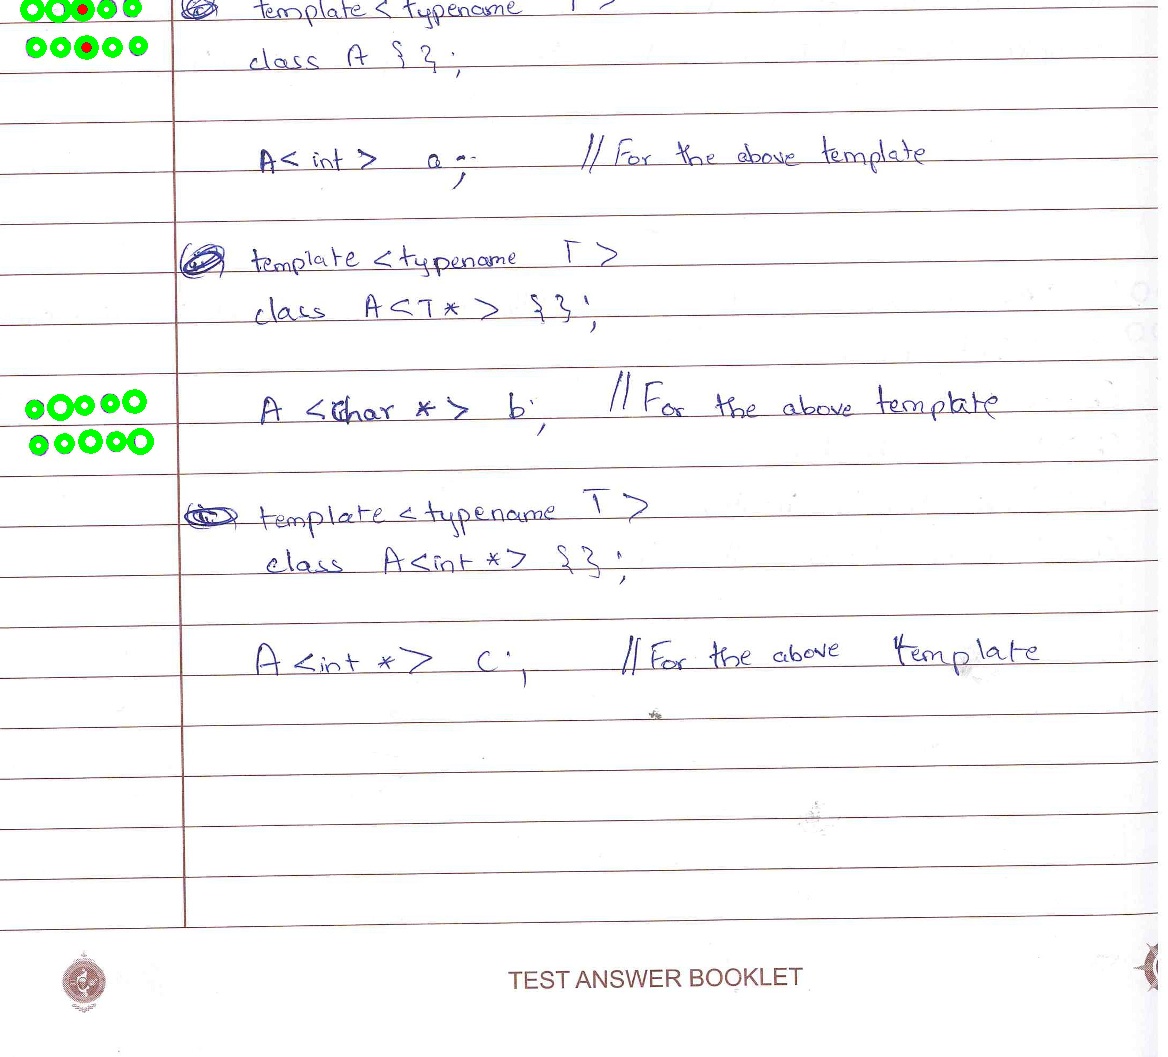 template < typename T >
class A { } ;
A< int > a ; // For the above template
template < typename T >
class A < T * > { } ;
A < char * > b ; // For the above template
template < typename T >
class A < int * > { } ;
A < int * > c ; // For the above template
TEST ANSWER BOOKLET